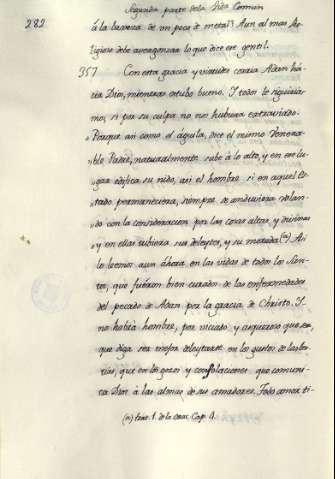 Segunda parte de la Vida Comun
282
á la baxeza de un poco de metal? Aun al mas Re-
ligioso debe avergonzar lo que dice ese gentil.
357 Con esta gracia y virtudes corria Adan há-
cia Dios, mientras estubo bueno. I todos le siguiéra-
mos, si por su culpa no nos hubiera extraviado.
"Porque asi como el águila, dice el mismo Venera-
ble Padre, naturalmente sube á lo alto, y en ese lu-
"gar edifica su nido, asi el hombre si en aquel es-
tado permaneciera, siempre se anduviera volan-
do con la consideracion por las cosas altas, y divinas
"y en ellas tubiera sus deleytes, y su morada (*) Asi
lo leemos aun ahora en las vidas de todos los San-
tos, que fuéron bien curados de las enfermedades
del pecado de Adan por la gracia de Christo. I
no habrá hombre, por viciado, y asqueroso que sea,
que diga ser mejor deleytarse en los gustos de las bes-
tias, que en los gozos y consolaciones que comuni-
ca Dios á las almas de sus amadores. Todo amor ti-
(*) tom. 1. de la Cap. 9.